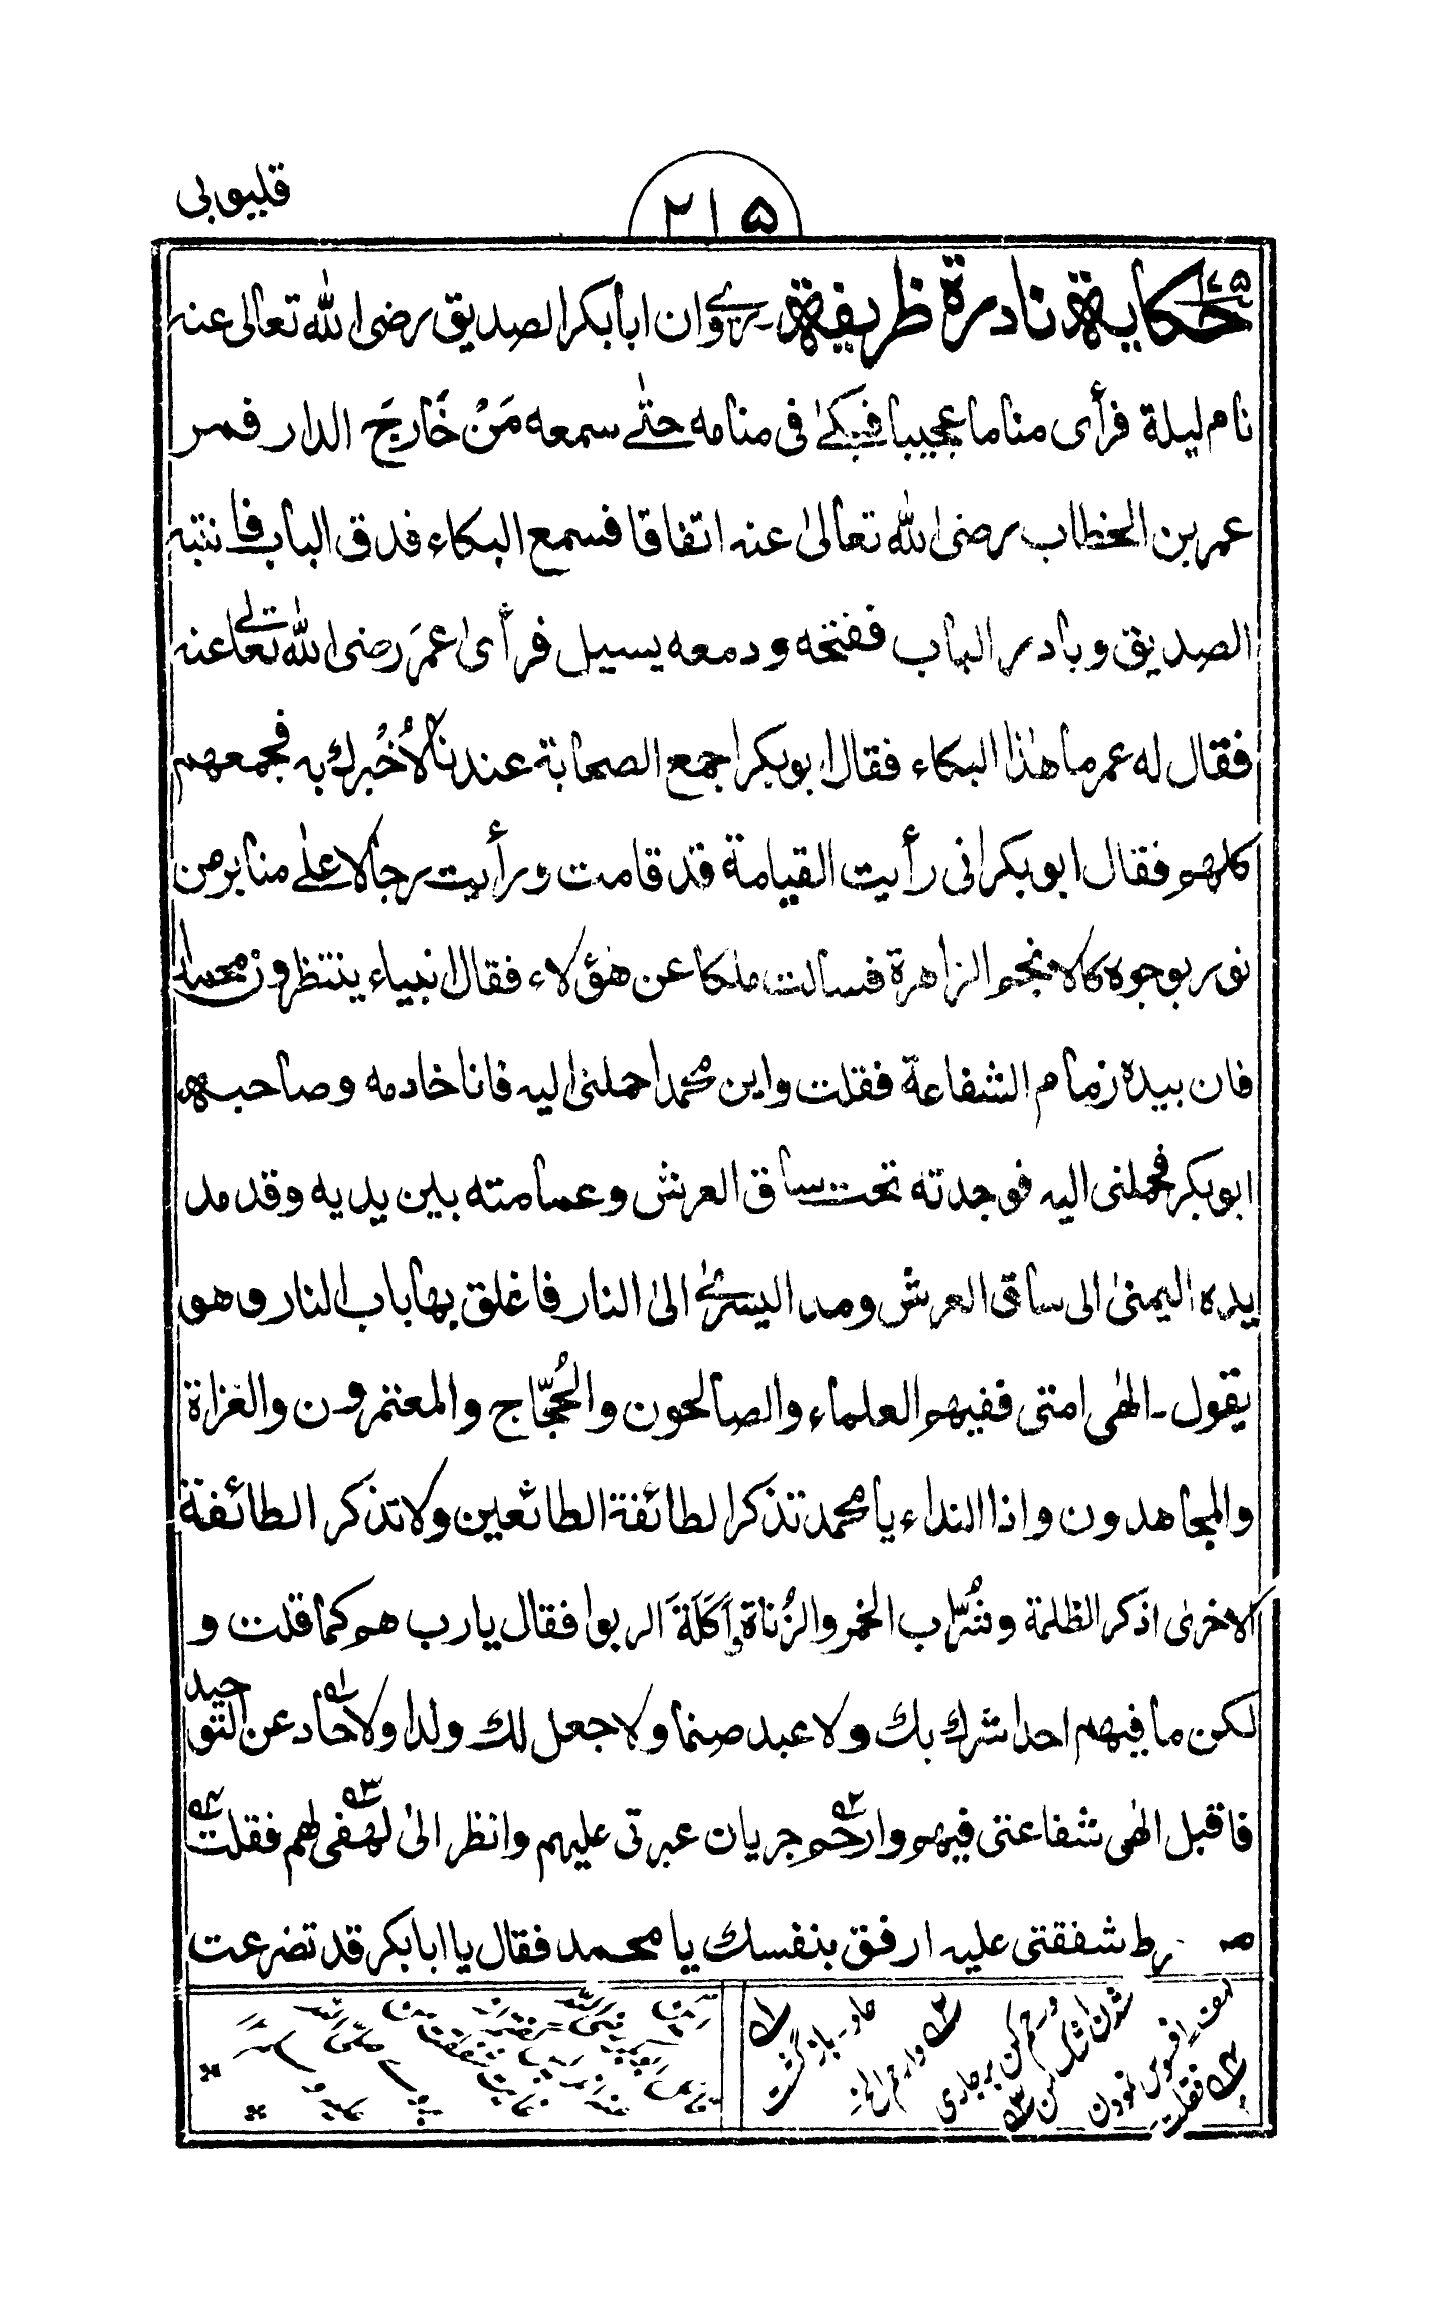 قليوبي
۲۱۵
۱۷۵ حكاية نادرة ظريفة ـ يروى ان ابا بكر الصديق رضى الله تعالى عنه
نام ليلة فرأى مناما عجيبا فبكى فى منامه حتى سمعه مَنْ خَارِجَ الدار فمر
عمر بن الخطاب رضى الله تعالىٰ عنه اتفاقا فسمع البكاء فدق الباب فانتبه
الصديق وبادر الباب ففتحه ودمعه يسيل فرأى عمرَ رضى الله تعالى عنه
فقال له عمر ما هٰذا البكاء فقال ابو بكر اجمع الصحابة عندنا لاُخْبرك به فجمعهم
كلهم فقال ابو بكر انى رأيت القيامة قد قامت ورأيت رجالا على منابر من
نور بوجوه كالانجم الزاهرة فسالت ملكا عن هؤلاء فقال انبياء ينتظرون محمدا
فان بيده زمام الشفاعة فقلت واين محمد احملنى اليه فانا خادمه وصاحبه
ابو بكر فحملنى اليه فوجدته تحت ساق العرش وعمامته بين يديه وقد مد
يده اليمنىٰ الى ساق العرش ومد اليسرىٰ الىٰ النار فاغلق بها باب النار وهو
يقول ـ الهٰى امتى ففيهم العلماء والصالحون والحُجَّاج والمعتمرون والغزاة
والمجاهدون واذا النداء يا محمد تذكر الطائفة الطائعين ولا تذكر الطائفة
الاخرىٰ اذكر الظلمة وشُرَّاب الخمر والزُناة وأَكَلَةَ الربوا فقال يا رب هم كما قلت و
لكن ما فيهم احد اشرك بك ولا عبد صنما ولا جعل لك ولدا ولا حاد عن التوحيد
فاقبل الهٰى شفاعتى فيهم وارحم جريان عبرتى عليهم وانظر الىٰ لهفى لهم فقلت
رط شفقتى عليه ارفق بنفسك يا محمد فقال يا ابا بكر قد تضرعت
حاد ـ باز گشت
وارحم الخ
ورحم كن بر جارى
شدن اشك من
لهف ـ افسوس نمودن
فقلت